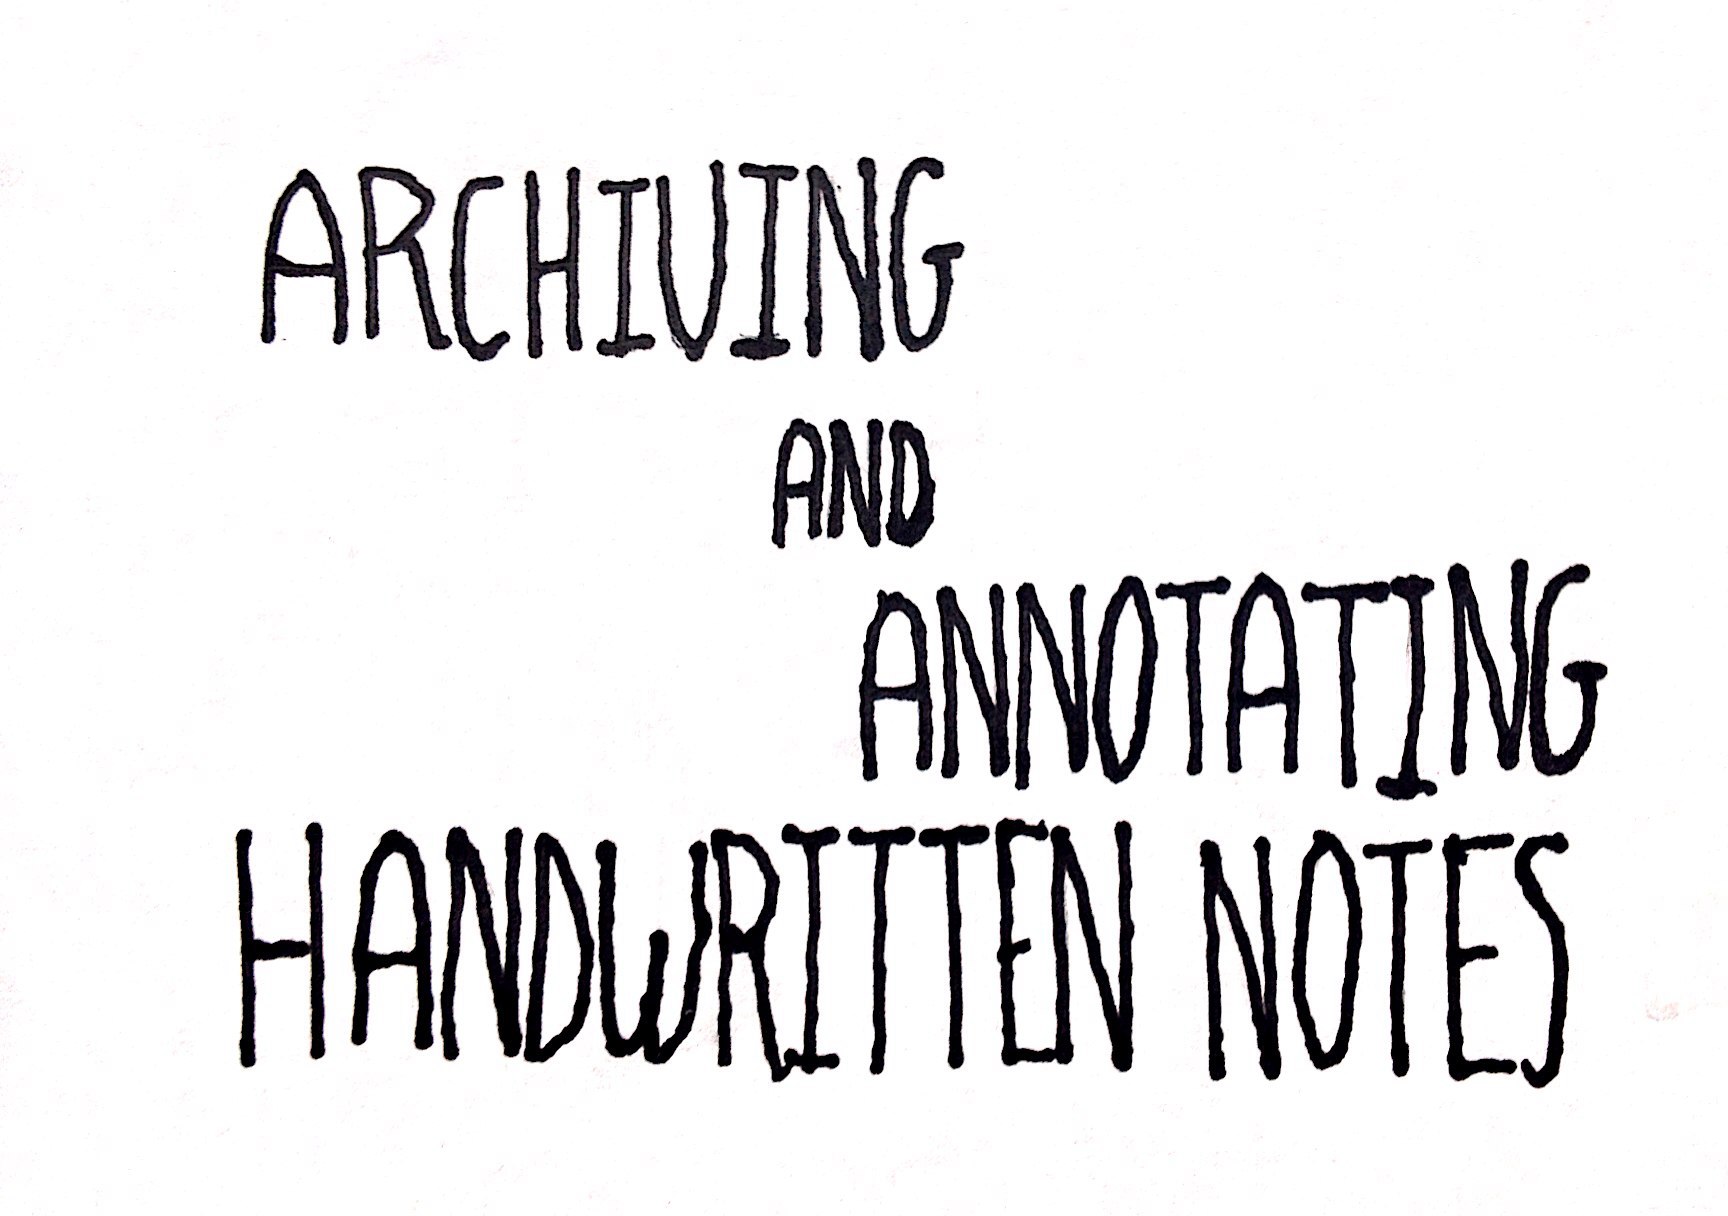 ARCHIVING
AND
ANNOTATING
HANDWRITTEN NOTES